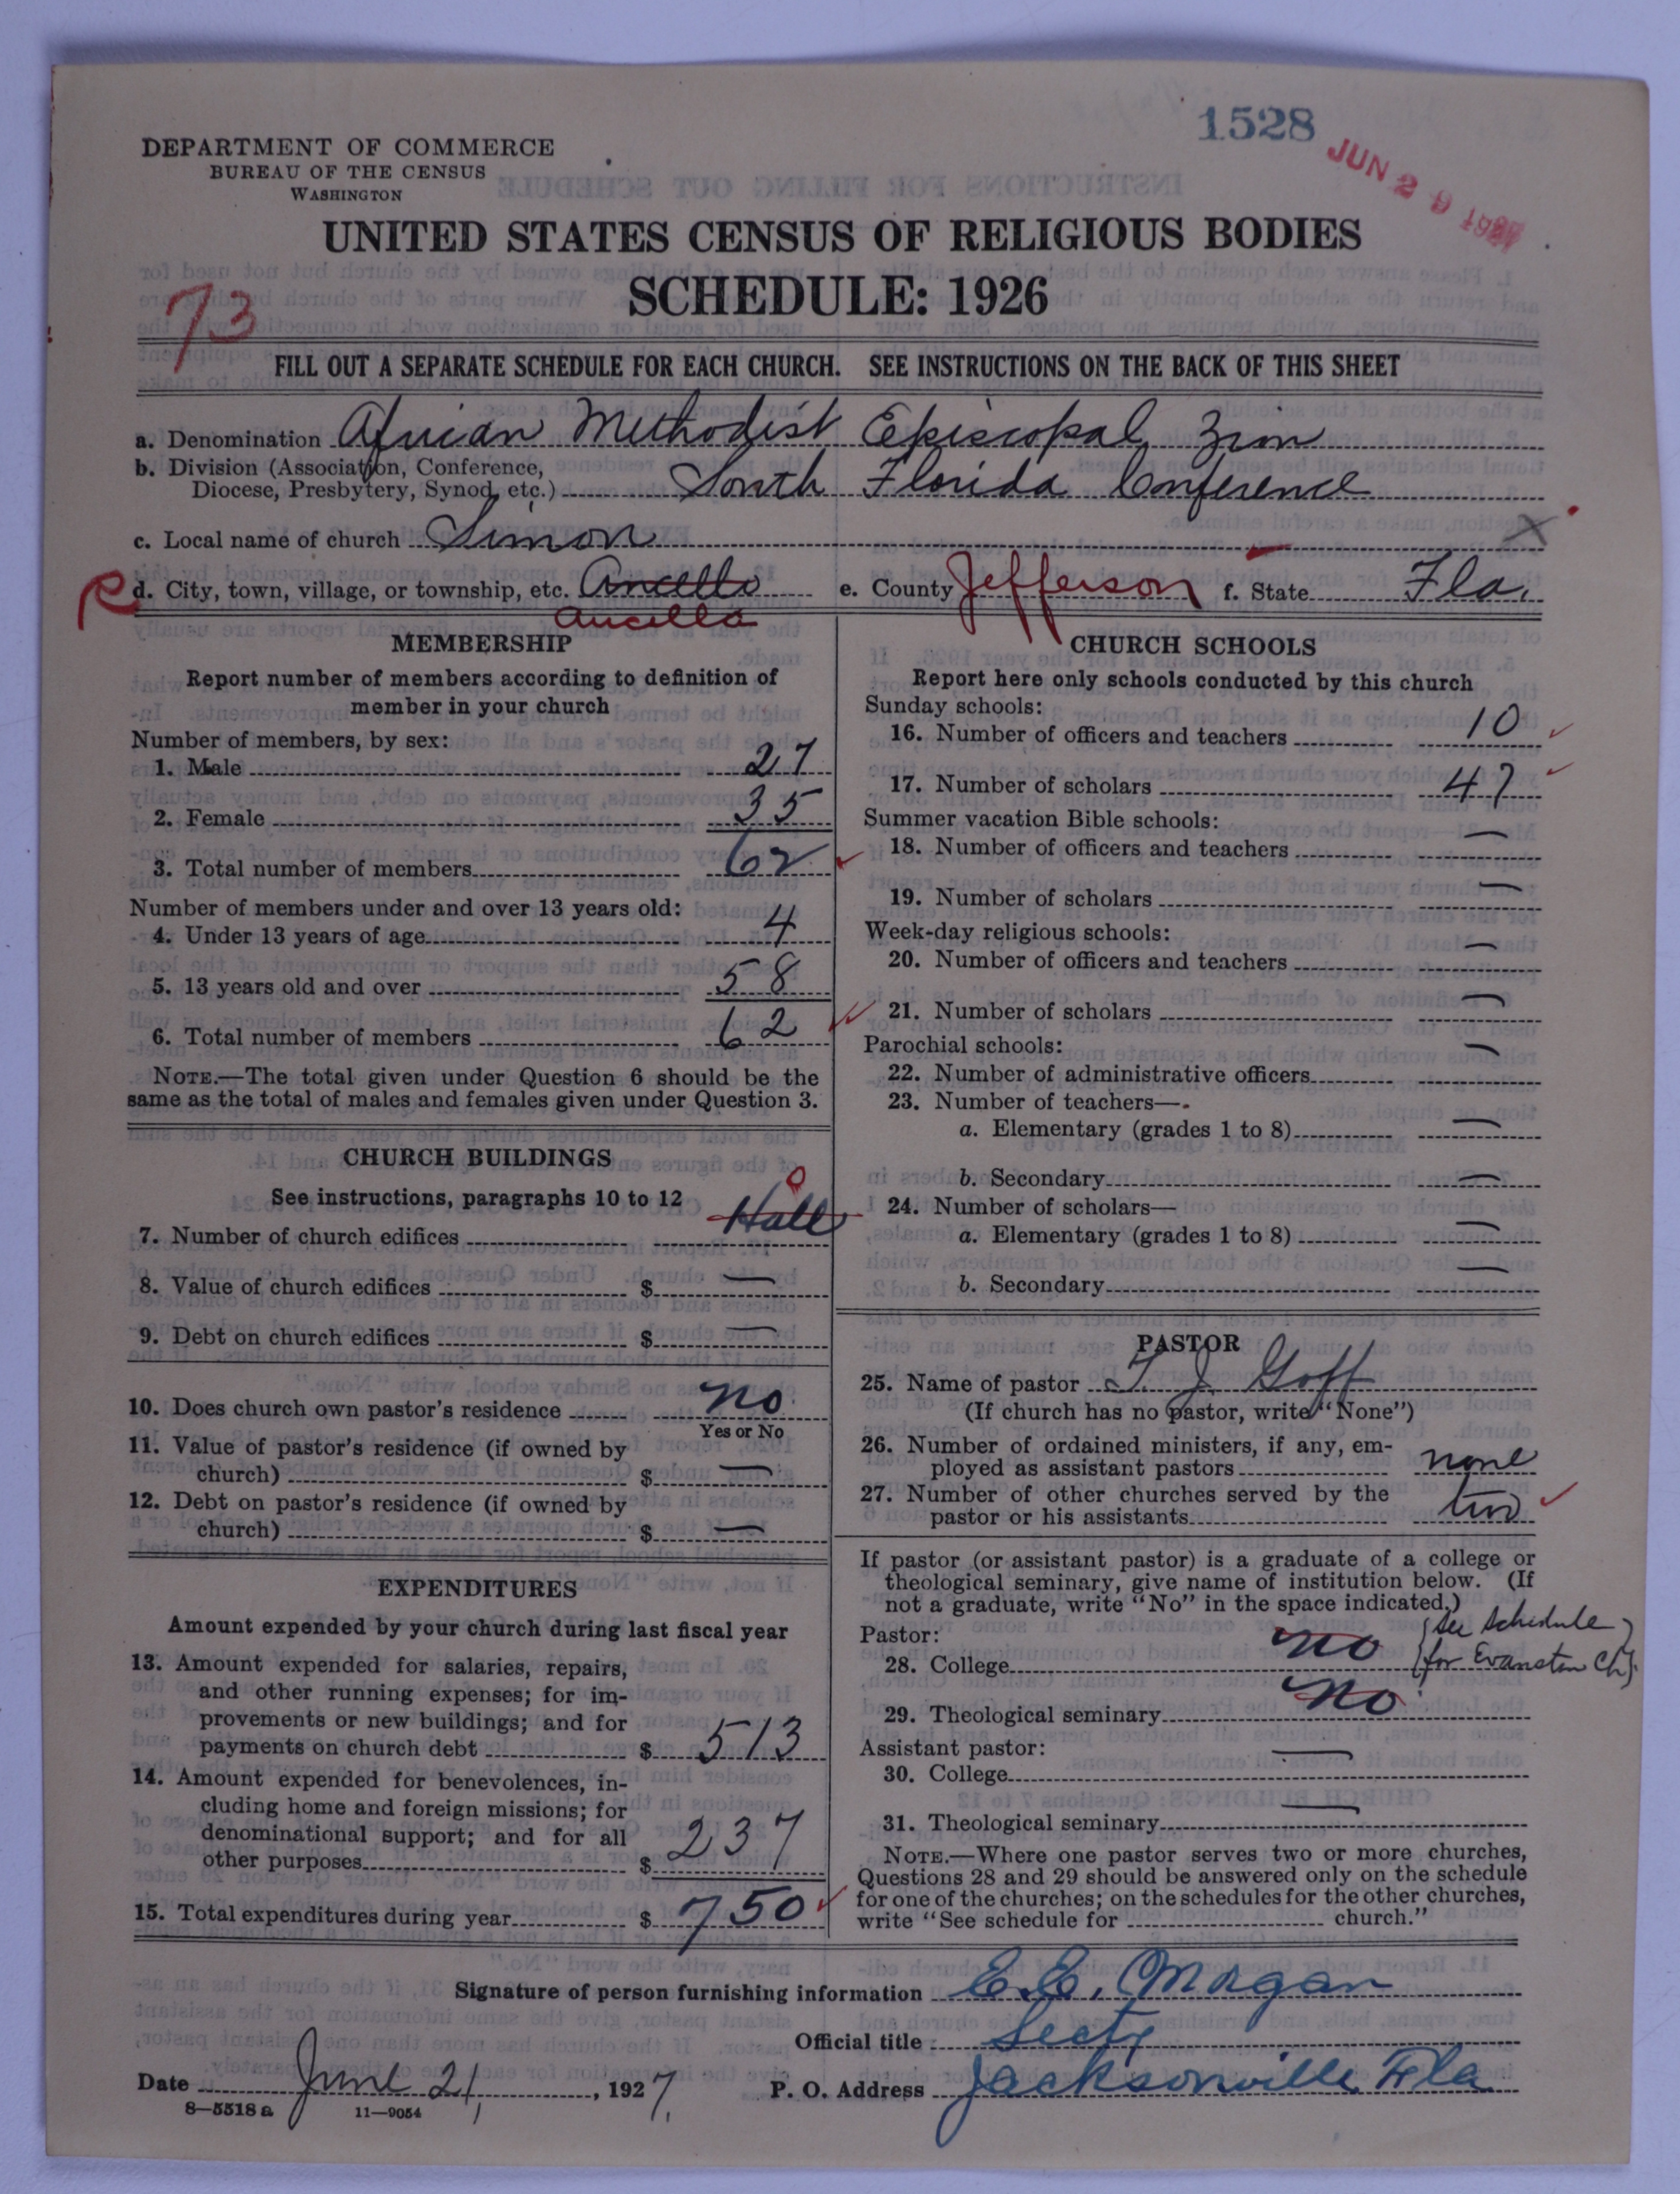 1528
JUN 29 1927
DEPARTMENT OF COMMERCE
BUREAU OF THE CENSUS
WASHINGTON
UNITED STATES CENSUS OF RELIGIOUS BODIES
SCHEDULE: 1926
73
FILL OUT A SEPARATE SCHEDULE FOR EACH CHURCH. SEE INSTRUCTIONS ON THE BACK OF THIS SHEET
a. Denomination African Methodist Episcopal Zion
b. Division (Association, Conference,
Diocese, Presbytery, Synod, etc.) South Florida Conference
c. Local name of church Simon X
d. City, town, village, or township, etc. Ancello e. County Jefferson f. State Fla.
Aucella
MEMBERSHIP
Report number of members according to definition of
member in your church
Number of members, by sex:
1. Male 27
2. Female 35
3. Total number of members 62
Number of members under and over 13 years old:
4. Under 13 years of age 4
5. 13 years old and over 58
6. Total number of members 62
NOTE.—The total given under Question 6 should be the
same as the total of males and females given under Question 3.
CHURCH BUILDINGS
See instructions, paragraphs 10 to 12
0
7. Number of church edifices Hall
8. Value of church edifices $ —
9. Debt on church edifices $ —
10. Does church own pastor's residence no
Yes or No
11. Value of pastor's residence (if owned by
church) $ —
12. Debt on pastor's residence (if owned by
church) $ —
EXPENDITURES
Amount expended by your church during last fiscal year
13. Amount expended for salaries, repairs,
and other running expenses; for im-
provements or new buildings; and for
payments on church debt $ 513
14. Amount expended for benevolences, in-
cluding home and foreign missions; for
denominational support; and for all
other purposes $ 237
15. Total expenditures during year $ 750
CHURCH SCHOOLS
Report here only schools conducted by this church
Sunday schools:
16. Number of officers and teachers 10
17. Number of scholars 47
Summer vacation Bible schools:
18. Number of officers and teachers —
19. Number of scholars —
Week-day religious schools:
20. Number of officers and teachers —
21. Number of scholars —
Parochial schools:
22. Number of administrative officers —
23. Number of teachers—
a. Elementary (grades 1 to 8) —
b. Secondary —
24. Number of scholars—
a. Elementary (grades 1 to 8) —
b. Secondary —
PASTOR
25. Name of pastor T. J. Goff
(If church has no pastor, write "None")
26. Number of ordained ministers, if any, em-
ployed as assistant pastors none
27. Number of other churches served by the
pastor or his assistants two
If pastor (or assistant pastor) is a graduate of a college or
theological seminary, give name of institution below. (If
not a graduate, write "No" in the space indicated.)
Pastor:
28. College no (See Schedule
for Evanston Ch).
29. Theological seminary no
Assistant pastor:
30. College —
31. Theological seminary —
NOTE.—Where one pastor serves two or more churches,
Questions 28 and 29 should be answered only on the schedule
for one of the churches; on the schedules for the other churches,
write "See schedule for church."
Signature of person furnishing information E. E. Morgan
Official title Secty
Date June 21, 1927. P. O. Address Jacksonville Fla
8—5518 a 11—9054